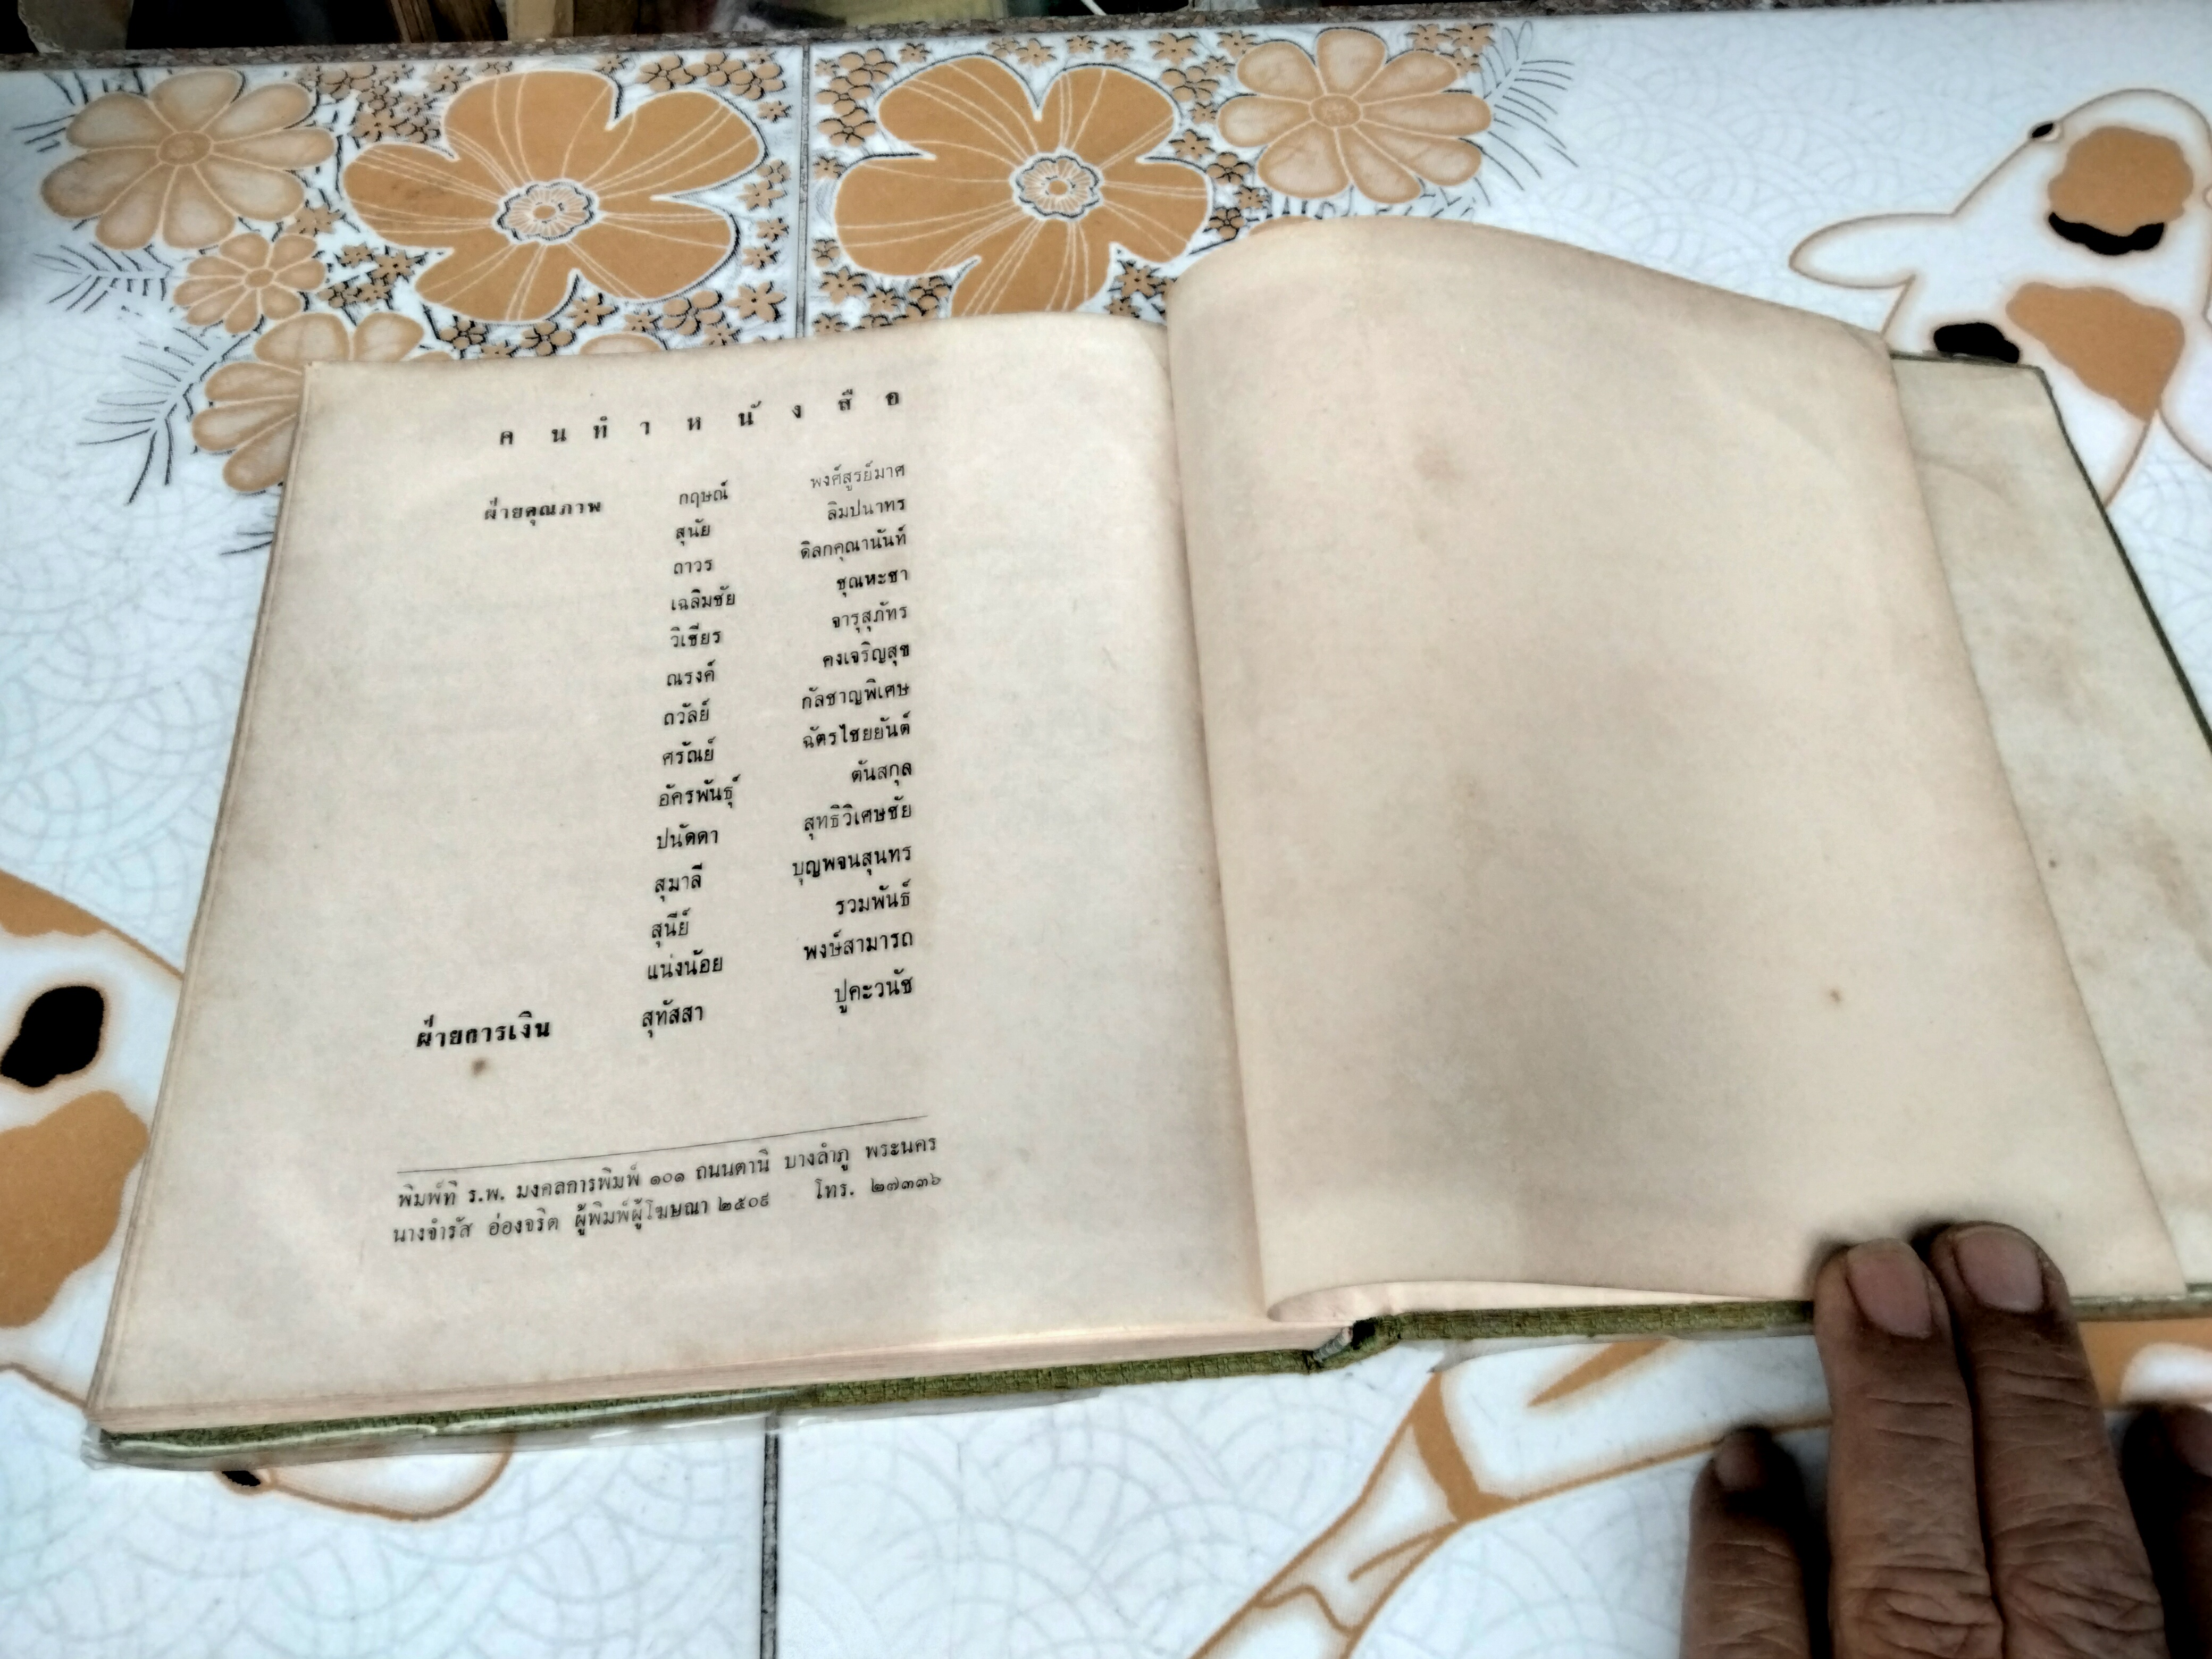 คนทำหนังสือ
ฝ่ายคุณภาพ กฤษณ์ พงศ์สูรย์มาศ
สุนัย ลิมปนาทร
ถาวร ดิลกคุณานันท์
เฉลิมชัย ชุณหะชา
วิเชียร จารุสุภัทร
ณรงค์ คงเจริญสุข
ถวัลย์ กัลชาญพิเศษ
ศรัณย์ ฉัตรไชยยันต์
อัครพันธุ์ ตันสกุล
ปนัดดา สุทธิวิเศษชัย
สุมาลี บุญพจนสุนทร
สุนีย์ รวมพันธ์
แน่งน้อย พงษ์สามารถ
ฝ่ายการเงิน สุทัสสา ปูคะวนัช
พิมพ์ที่ ร.พ. มงคลการพิมพ์ ๑๐๑ ถนนตานี บางลำภู พระนคร
นางจำรัส อ่องจริต ผู้พิมพ์ผู้โฆษณา ๒๕๐๙ โทร. ๒๗๓๓๖